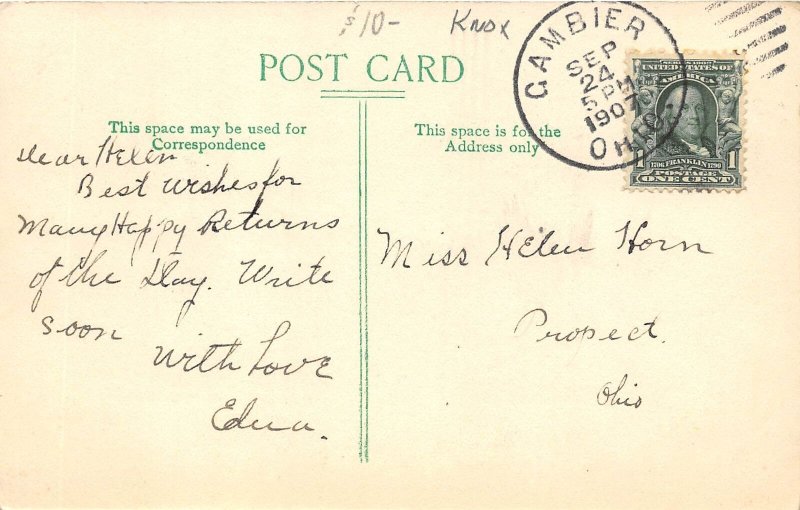 $10- Knox
POST CARD
This space may be used for
Correspondence
This space is for the
Address only
GAMBIER
SEP
24
5 PM
1907
OHIO.
SERIES 1902
UNITED STATES OF
AMERICA
1706 FRANKLIN 1790
1 1
POSTAGE
ONE CENT
Dear Helen
Best wishes for
Many Happy Returns
of the Day. Write
soon
With Love
Edna.
Miss Helen Horn
Propect.
Ohio